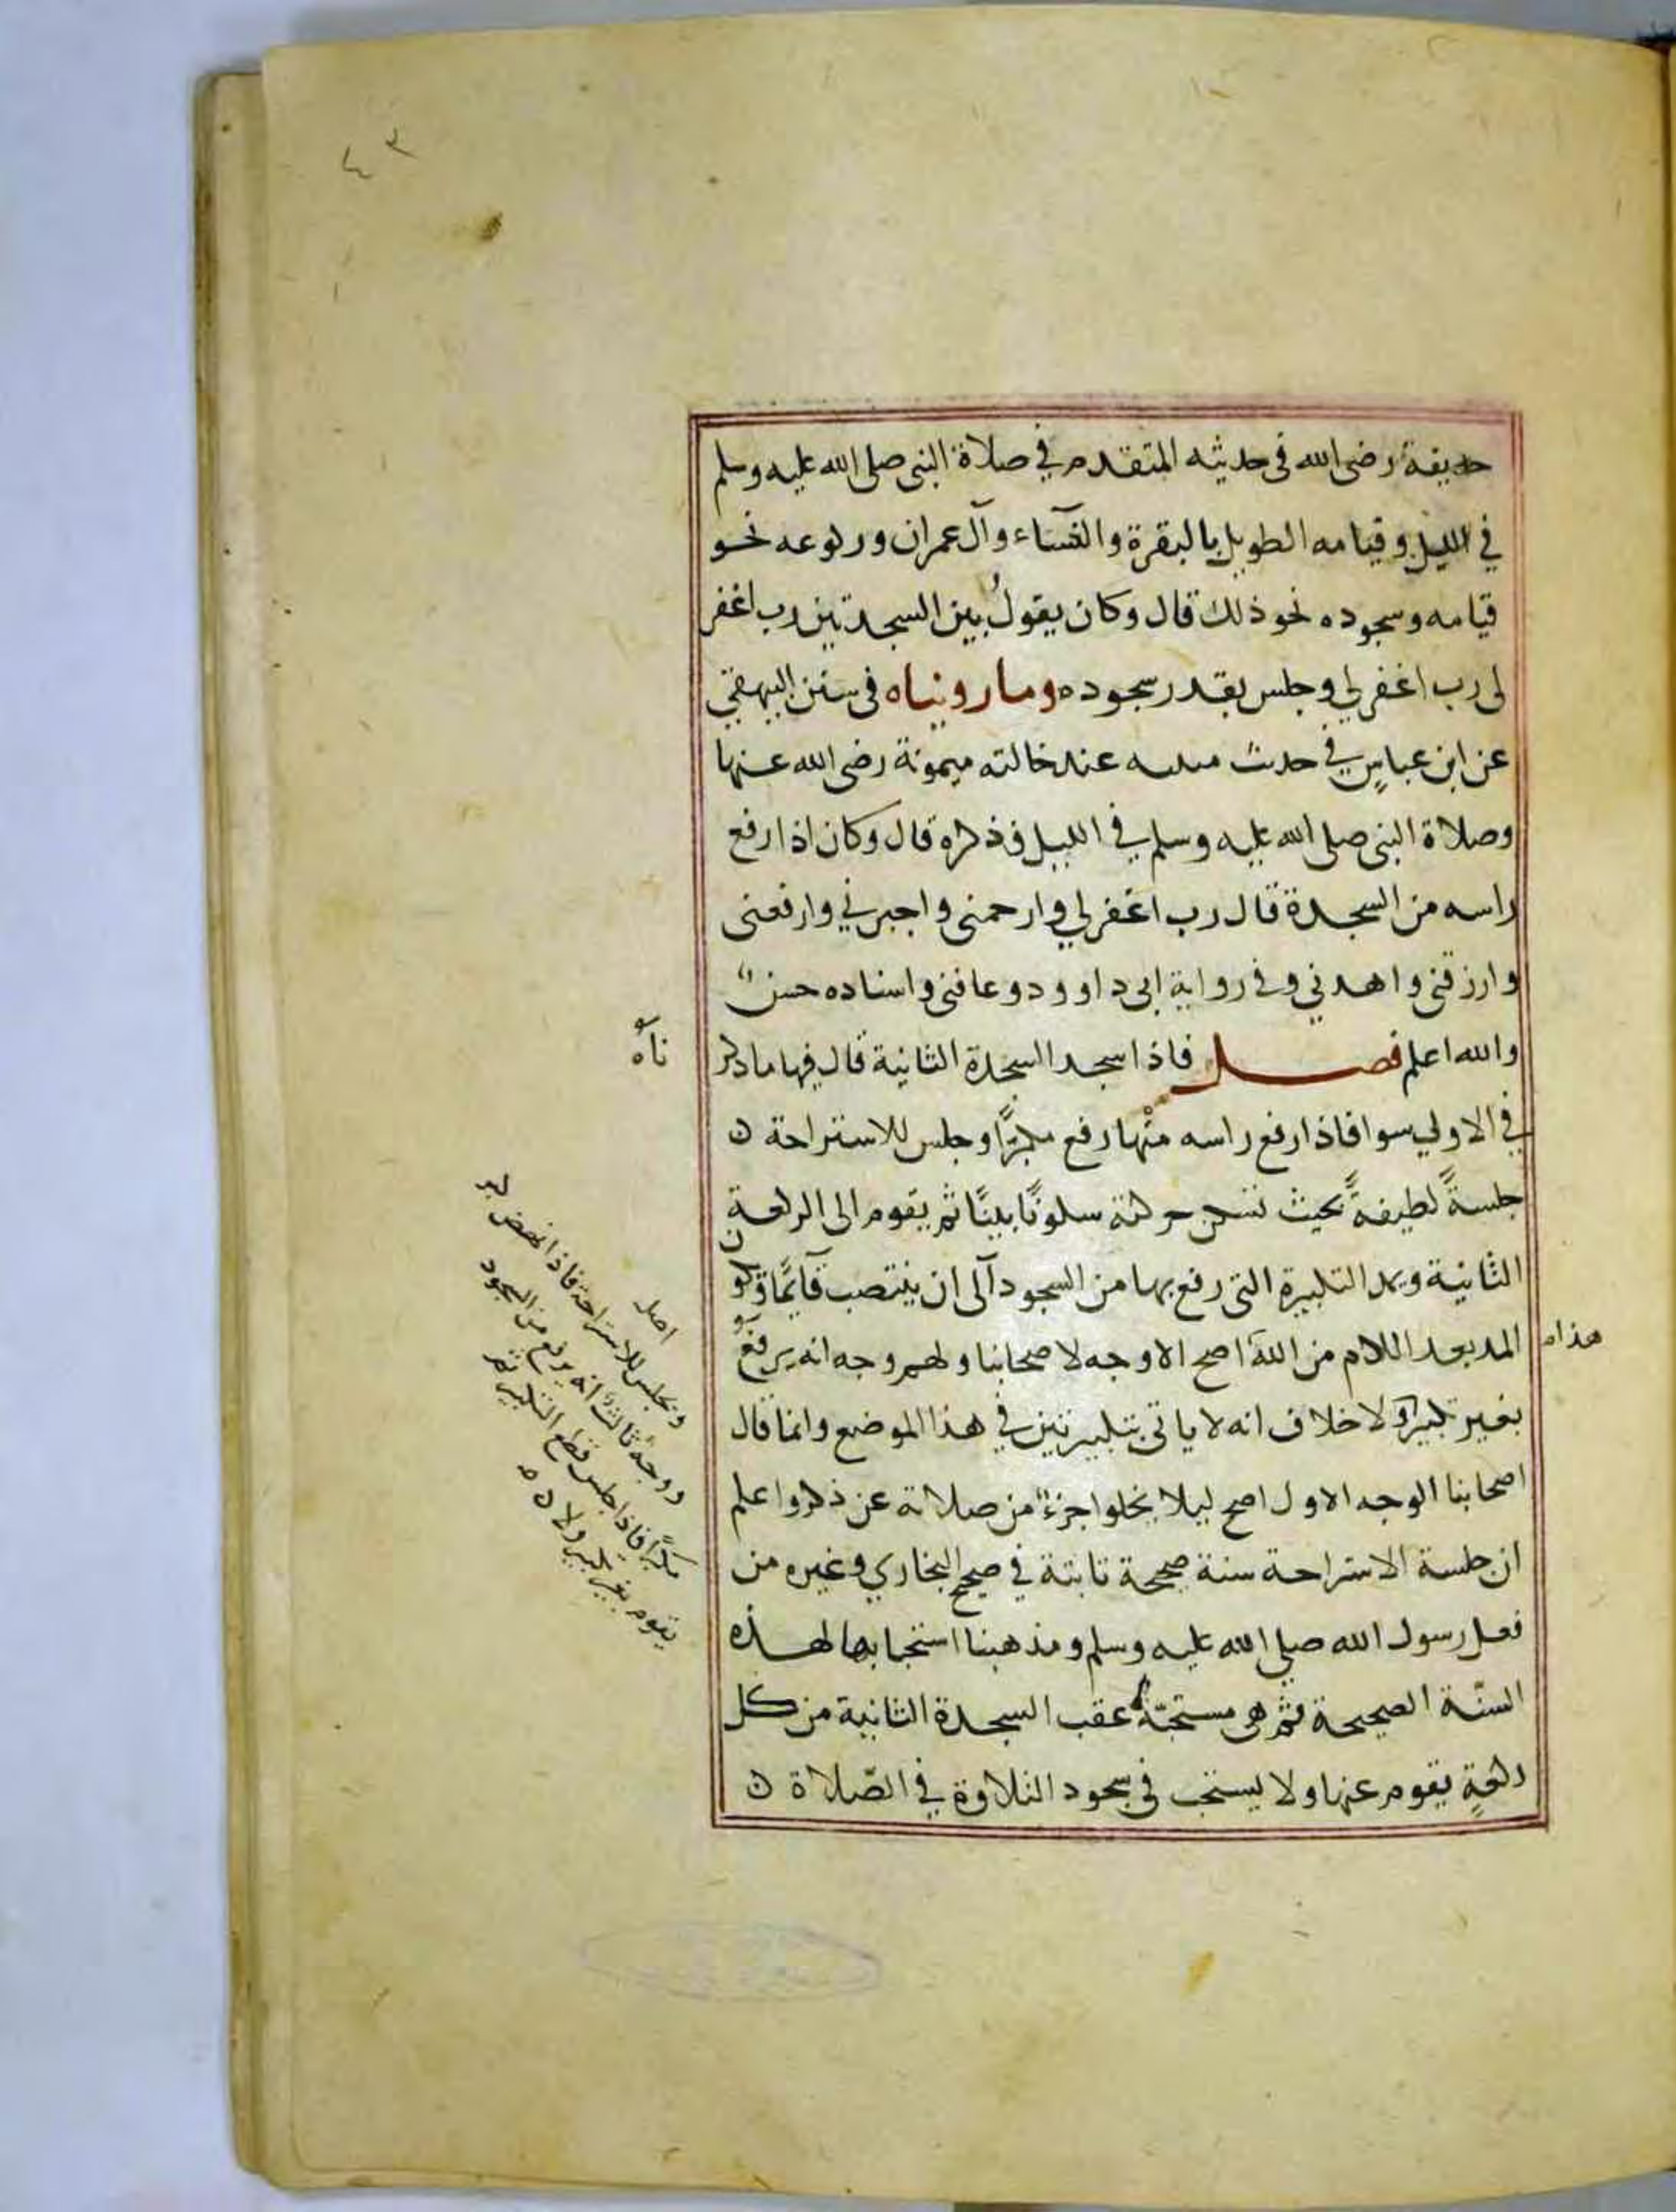 ٤٣
حذيفة رضى الله فى حديثه المتقدم في صلاة النبى صلى الله عليه وسلم
في الليل وقيامه الطويل بالبقرة والنسآء وآل عمران وركوعه نحو
قيامه وسجوده نحو ذلك قال وكان يقولُ بين السجدتين رب اغفر
لى رب اغفر لي وجلس بقدر سجوده وما رويناه فى سنن البيهقي
عن ابن عباسٍ في حديث مبيته عند خالته ميمونة رضى الله عنها
وصلاة النبى صلى الله عليه وسلم في الليل فذكره قال وكان اذا رفع
راسه من السجدة قال رب اغفر لي وارحمنى واجبرني وارفعنى
وارزقنى واهدني وفى رواية ابى داوود وعافنى واسناده حسنٌ
والله اعلم فصل فاذا سجد السجدة الثانية قال فيها ما ذكر
ناه
في الاولي سوا فاذا رفع راسه منْها رفع مكبرًا وجلس للاستراحة ن
جلسةً لطيفةً بحيث تسكن حركته سكونًا بينًا ثم يقوم الى الركعة
الثانية ويمد التكبيرة التى رفع بها من السجود آلى ان ينتصب قآيمًا ويكون
المد بعد اللام من اللهَ اصح الاوجه لاصحابنا ولهم وجه انه يرفع
هذا
بغير تكبير ولا خلاف انه لا ياتى بتكبيرتين في هذا الموضع وانما قال
اصحابنا الوجه الاول اصح ليلا يخلوا جزءٌ من صلاته عن ذكر واعلم
ان جلسة الاستراحة سنة صحيحة ثابتة في صحيح البخاري وغيره من
فعل رسول الله صلي الله عليه وسلم ومذهبنا استحبابها لهذه
السنّة الصحيحة ثم هى مستحبّة عقب السجدة الثانية من كل
ركعةٍ يقوم عنها ولا يستحب فى سجود التلاوة في الصّلاة ن
اصل
ويجلس للاستراحة فاذا نهض كبر
ووجهٌ ثالثٌ انه يرفع من السجود
مكبرًا فاذا جلس قطع التكبير ثم
يقوم بغير تكبير ولا